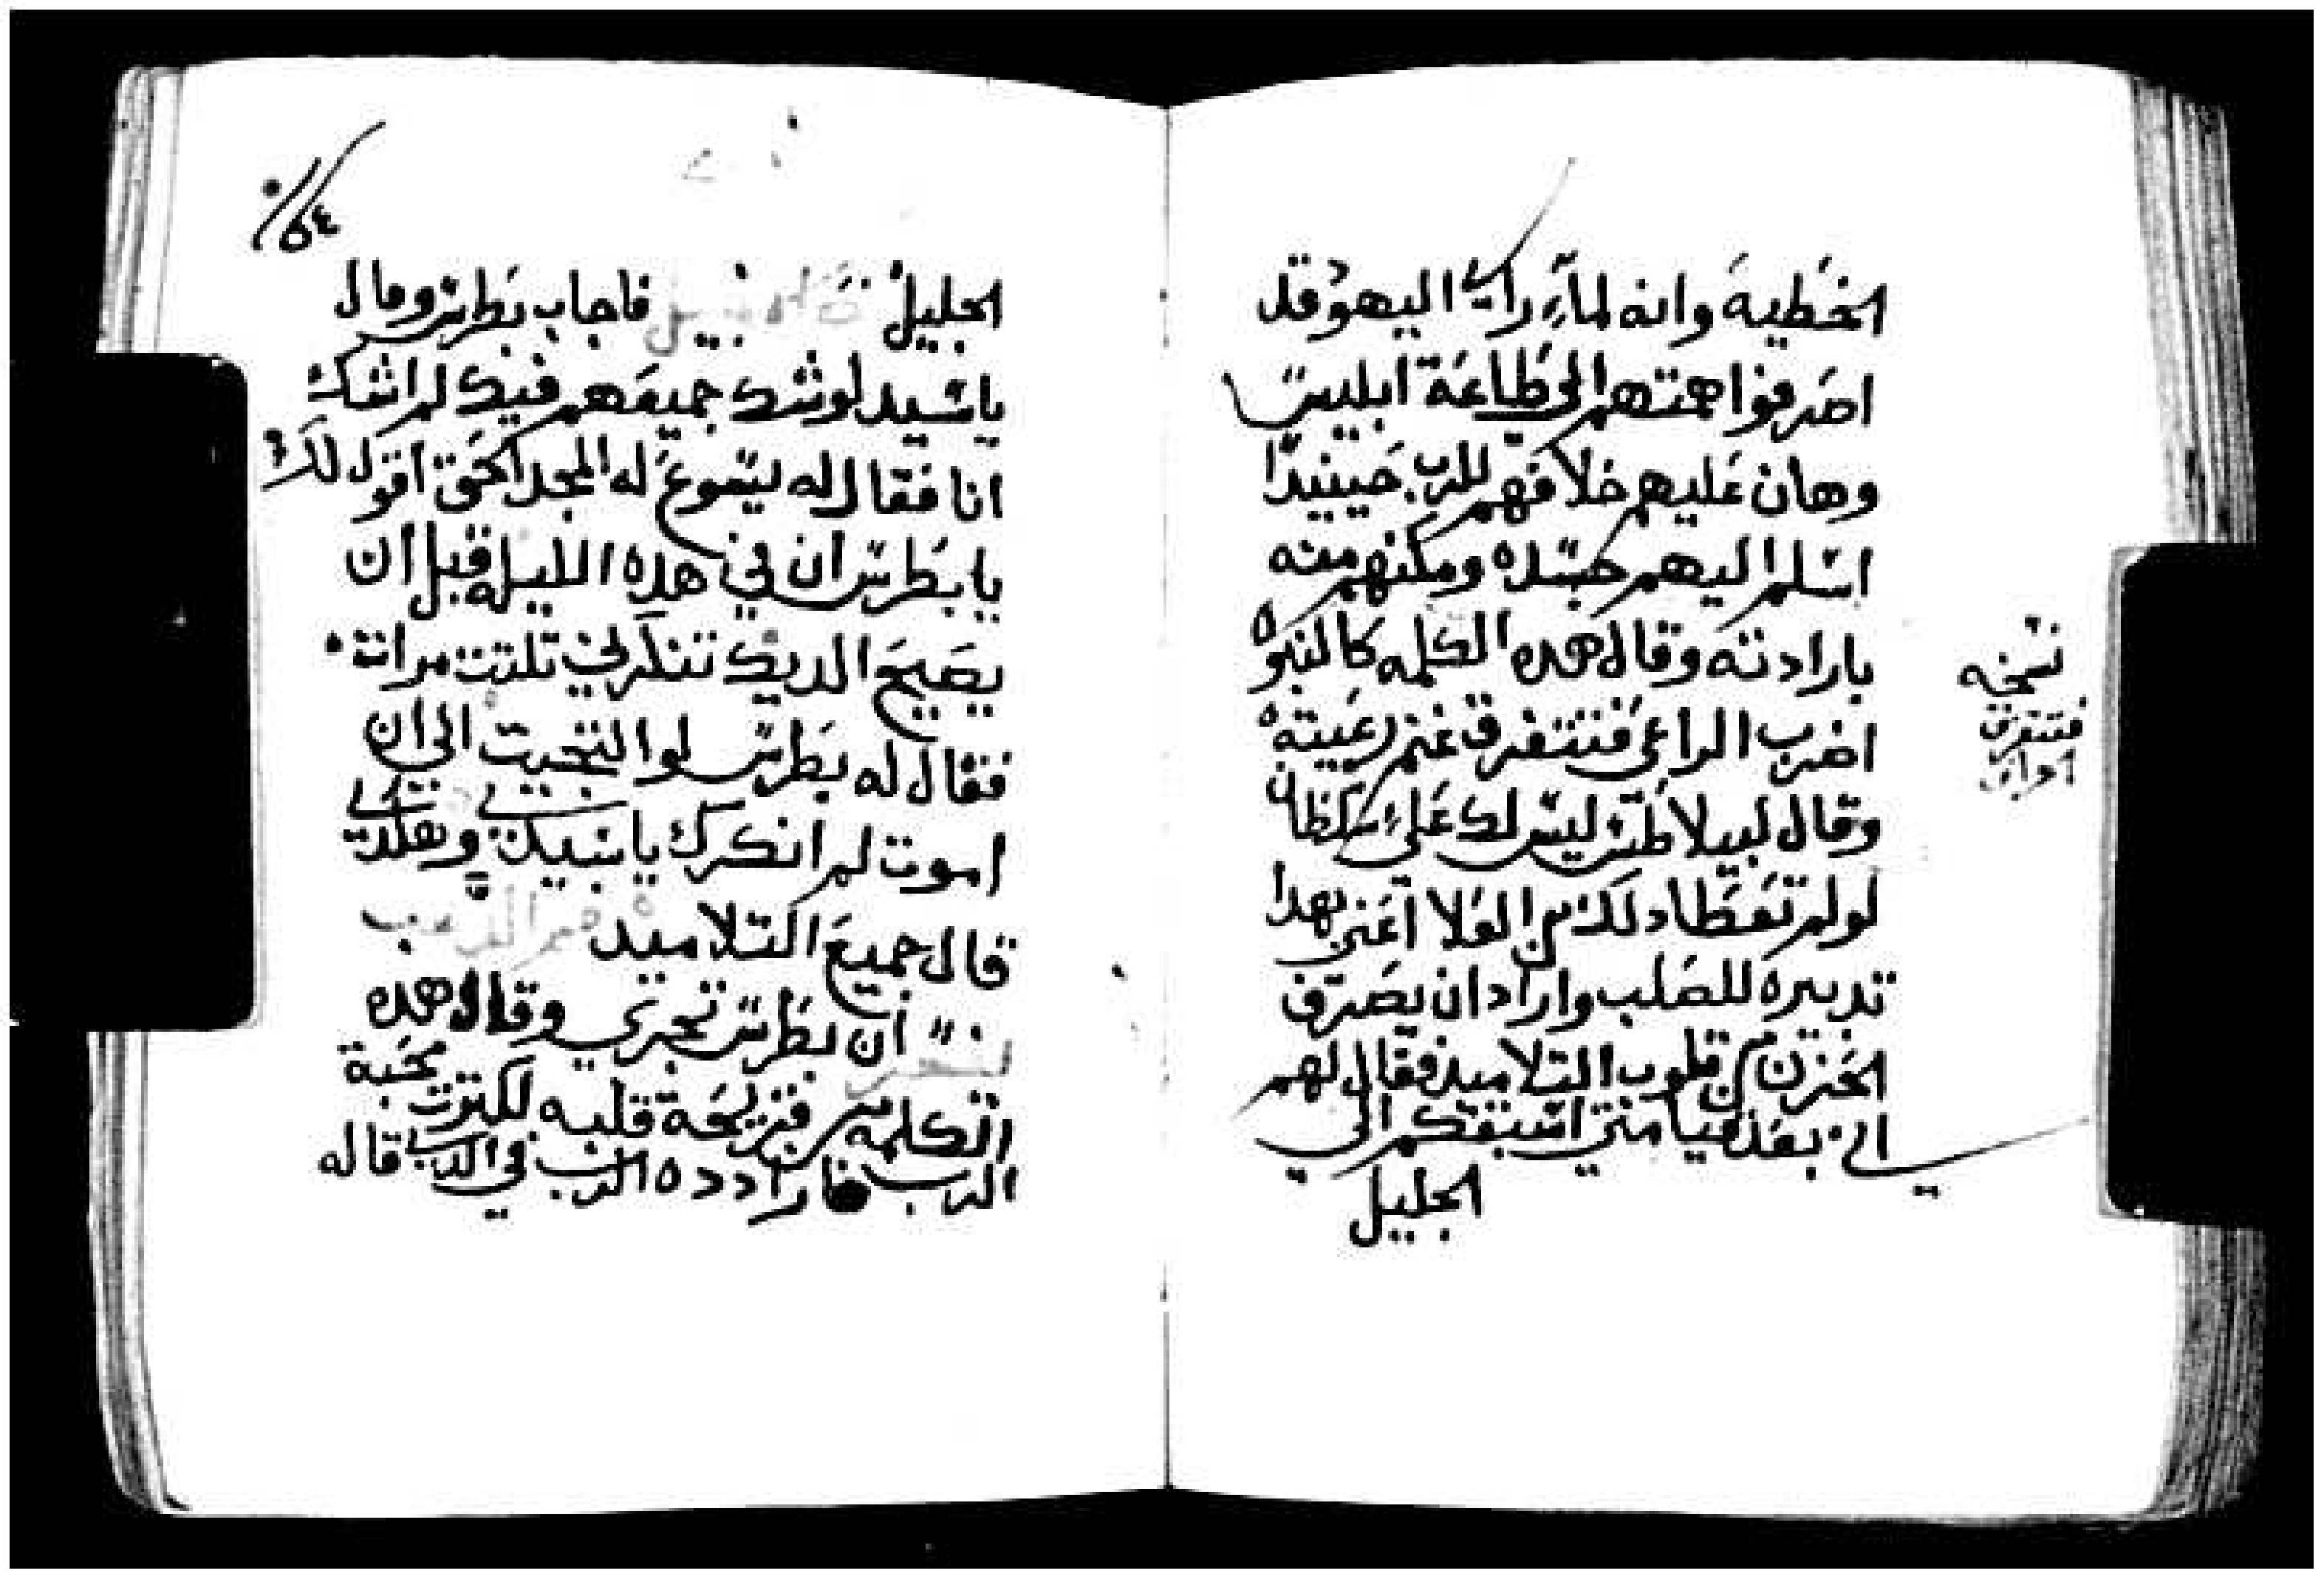 الخطية وانه لما راي اليهود قد
اصرفوا همتهم الي طاعة ابليس
وهان عليهم خلافهم للرب حينيدا
اسلم اليهم جسده ومكنهم منه
بارادته وقال هده الكلمه كالنبوه
اضرب الراعي فتتفرق غنم رعيته
وقال لبيلاطس ليس لك علي سلطان
لو لم تعطا دلك من العلا اعني بهدا
تدبيره للصلب واراد ان يصرف
الحزن من قلوب التلاميد فقال لهم
اني بعد قيامتي اسبقكم الي
الجليل
نسخه
فتتفرق
٥٤
الجليل فاجاب بطرس وقال
يا سيد لو شك جميعهم فيك لم اشك
انا فقال له يسوع له المجد الحق اقول لك
يا بطرس ان في هده الليله قبل ان
يصيح الديك تنكرني تلتت مرات
فقال له بطرس لو التجيت الي ان
اموت لم انكرك يا سيدي وهكدي
قال جميع التلاميد
ان بطرس تجري وقال هده
الكلمه من قريحة قلبه لكترت محبة
الرب فارادده الرب في الدي قاله